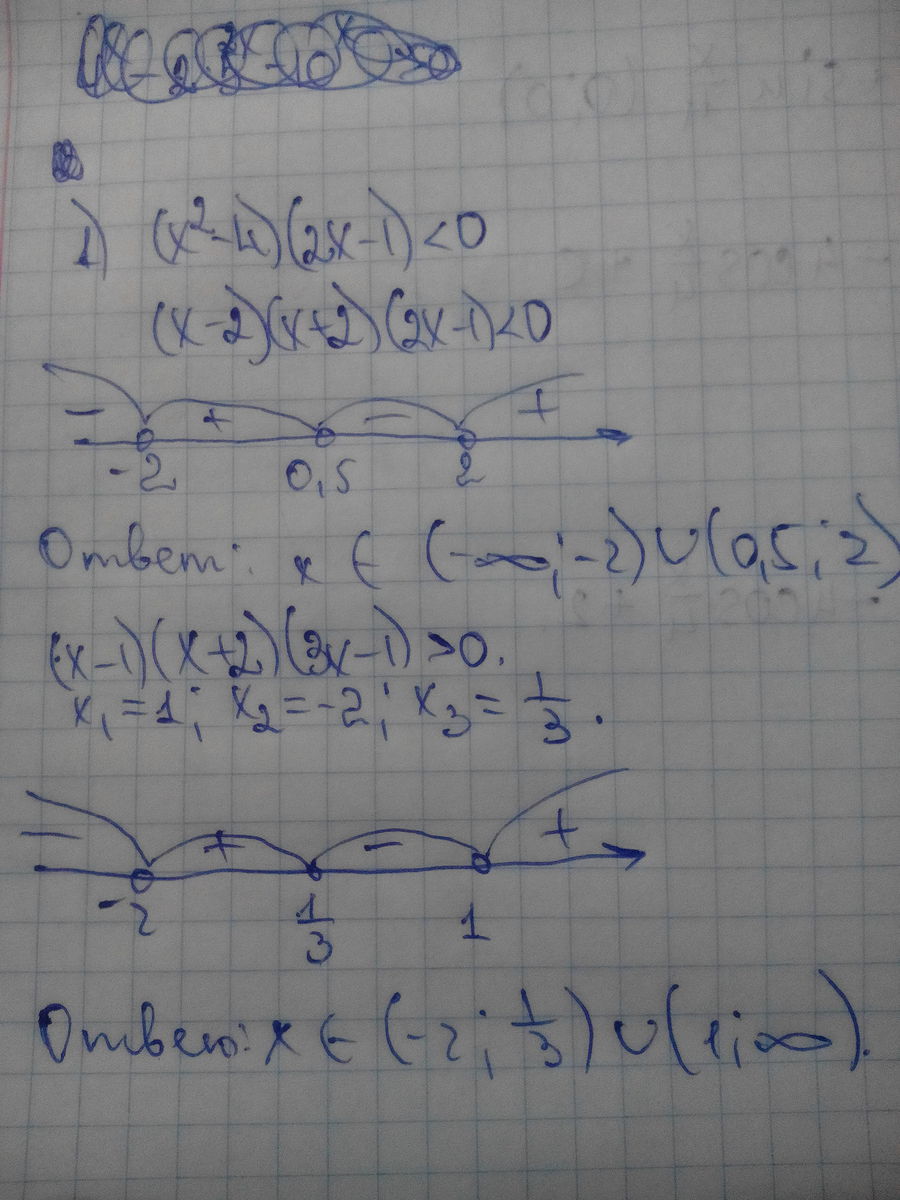 1) (x²-4)(2x-1)<0
(x-2)(x+2)(2x-1)<0
- + - +
-2 0,5 2
Ответ: x ∈ (-∞;-2)∪(0,5;2)
(x-1)(x+2)(3x-1)>0.
x₁=1; x₂=-2; x₃=1/3.
- + - +
-2 1/3 1
Ответ: x ∈ (-2; 1/3)∪(1;∞).